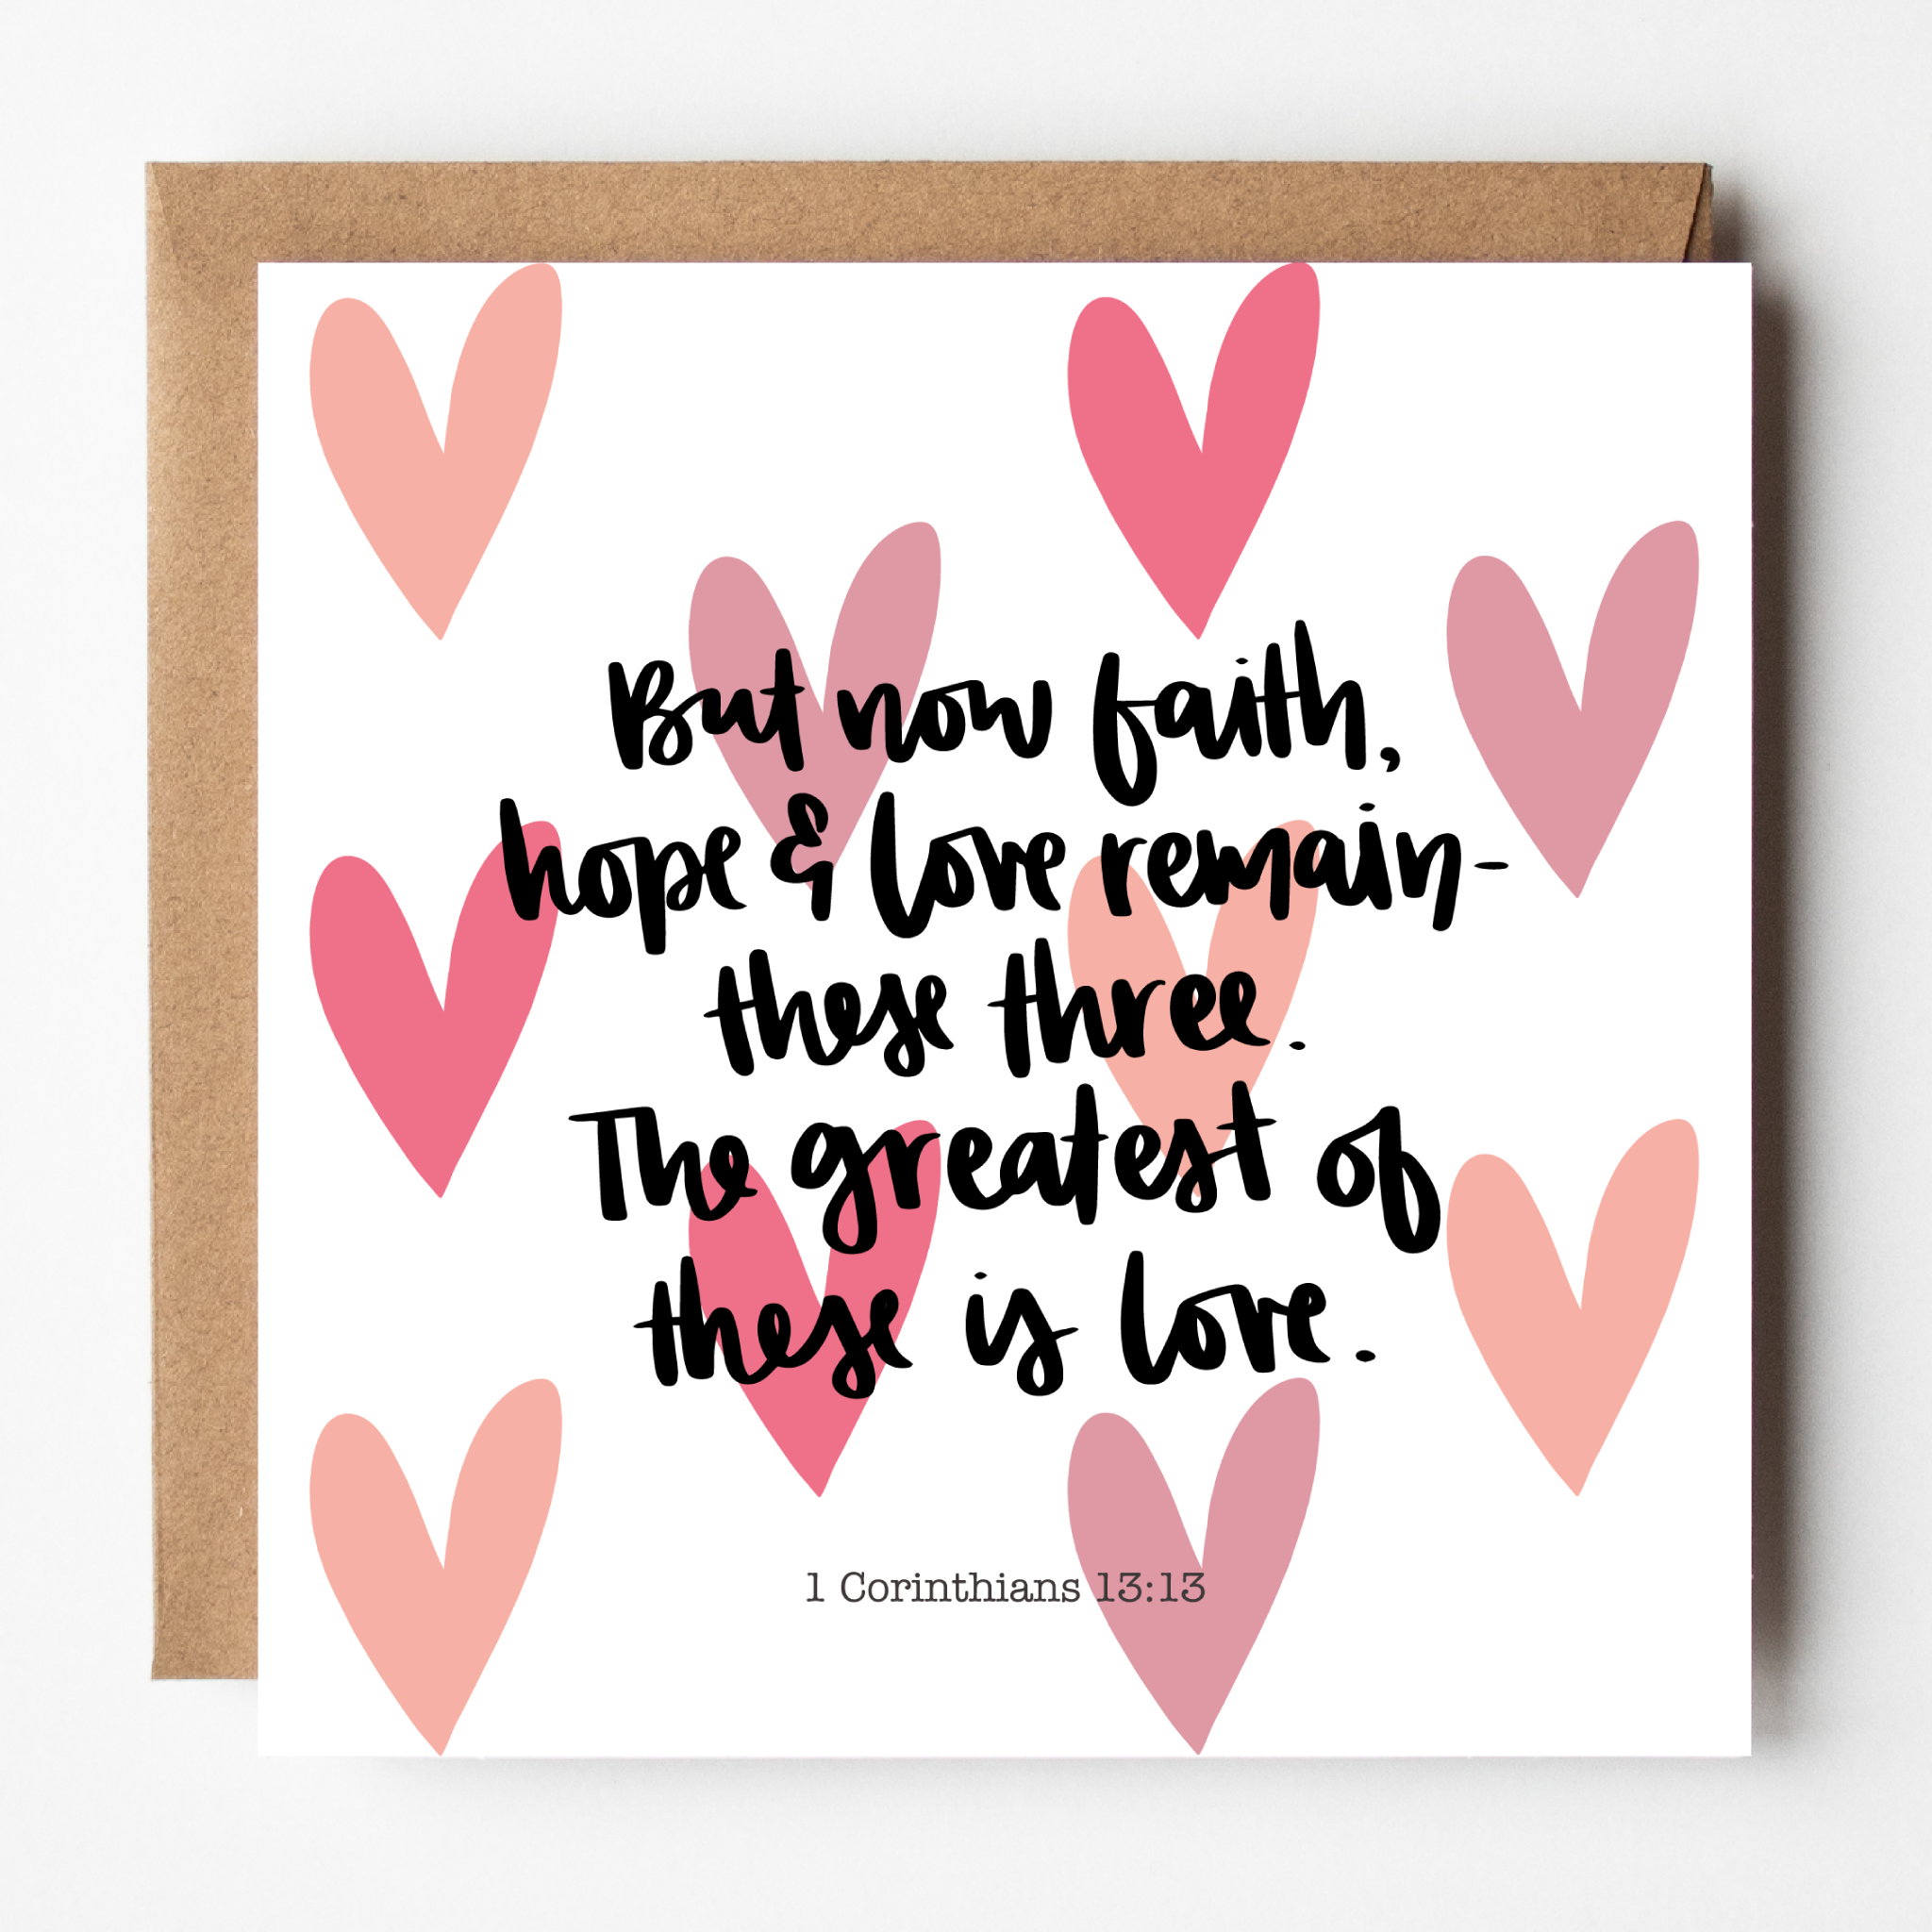 But now faith,
hope & love remain-
these three.
The greatest of
these is love.
1 Corinthians 13:13